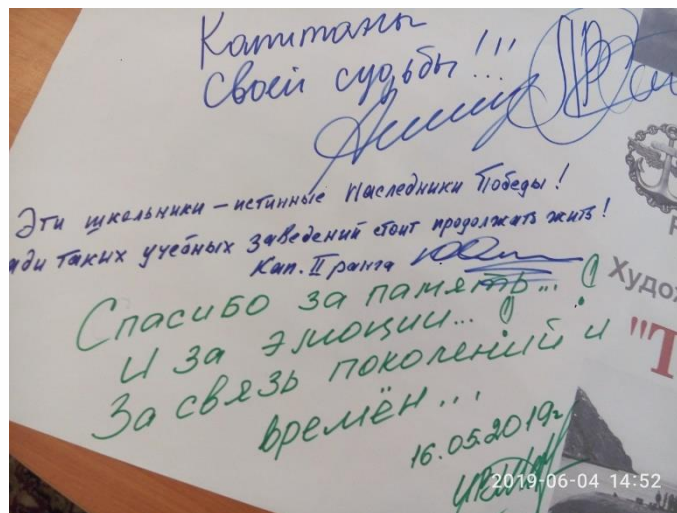 Капитаны
своей судьбы!!!
Эти школьники – истинные Наследники Победы!
ади таких учебных заведений стоит продолжать жить!
Кап. II ранга
Спасибо за память...!
и за эмоции...!
За связь поколений и
времён...
16.05.2019г
Худо
"Т
2019-06-04 14:52